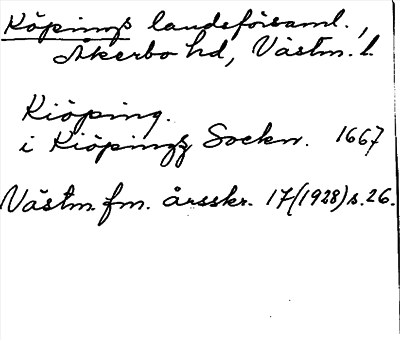 Köpings landsförsaml.,
Åkerbo hd, Västm. l.
Kiöping.
i Kiöpingz Sockn. 1667
Västm. fm. årsskr. 17(1928)s.26.